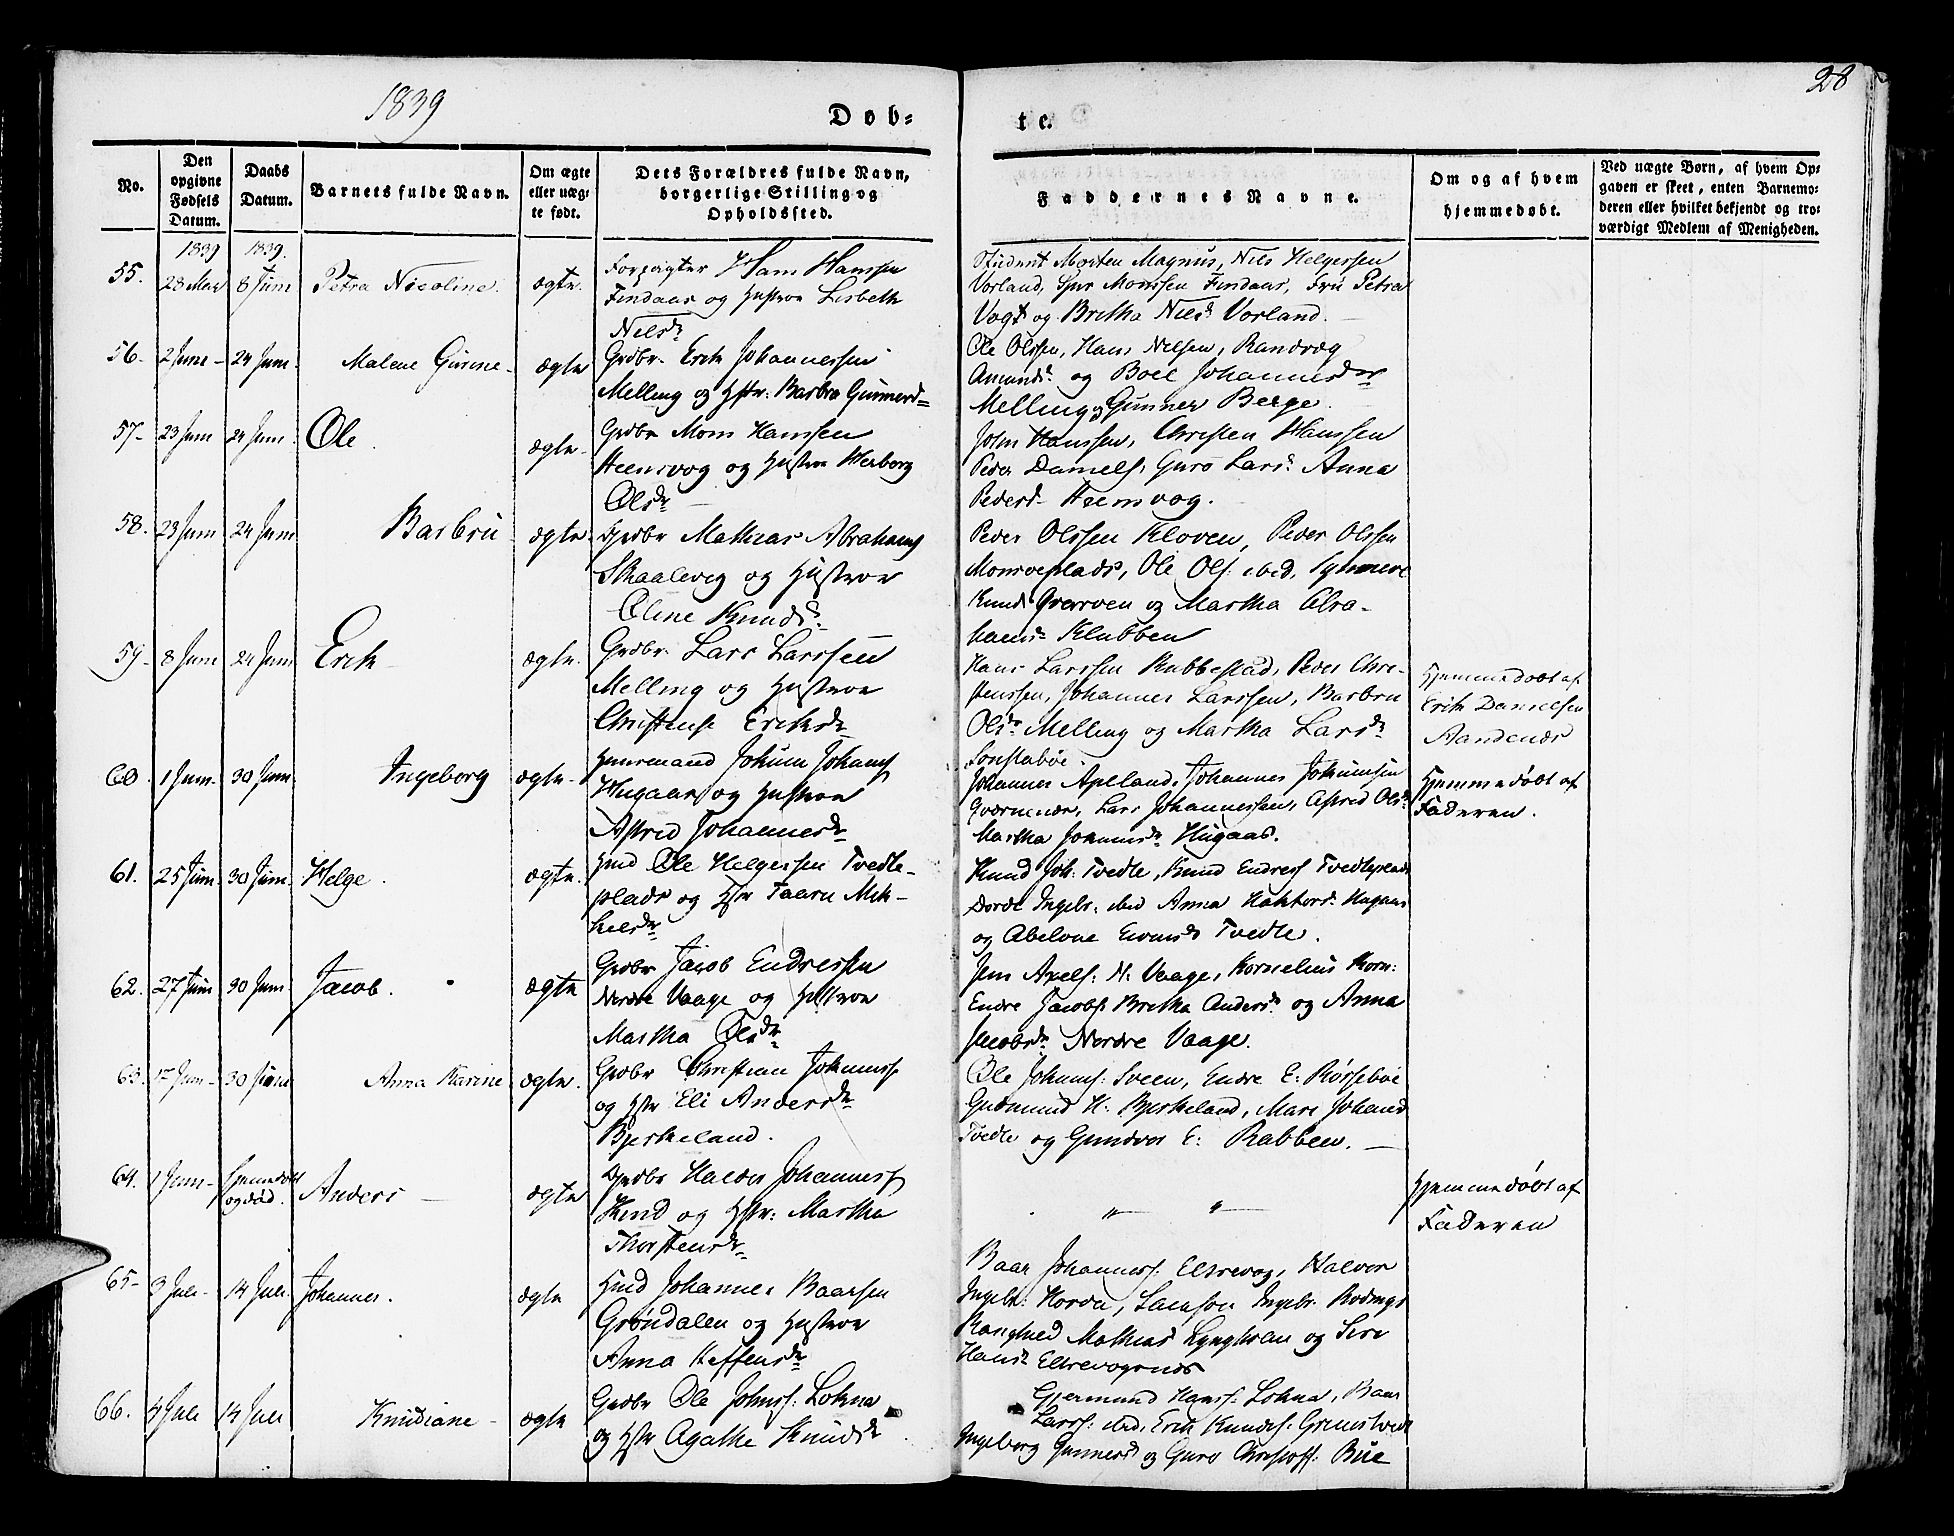 1839
28
Døb-
te.
No.
Den opgivne Fødsels Datum.
Daabs Datum.
Barnets fulde Navn.
Om ægte eller uægte født.
Dets Forældres fulde Navn, borgerlige Stilling og Opholdssted.
Faddernes Navne.
Om og af hvem hjemmedøbt.
Ved uægte Børn, af hvem Opgaven er skeet, enten Barnemoderen eller hvilket bekjendt og troværdigt Medlem af Menigheden.
1839 1839.
55. 28 Mai 8 Juni Petra Nicoline. ægte. Forpagter Hans Hanssen
Findaas og Hustroe Lisbeth
Nilsdr
Student Morten Magnus, Nils Helgessen
Vorland, Sjur Monssen Findaas, Fru Petra
Vogt og Britha Nilsdr Vorland.
56. 2 Juni 24 Juni Malene Gurine ægte Grdbr. Erik Johannessen
Melling og Hstr: Barbra Gunnerd
Ole Olssen, Hans Nelsen, Randvæg
Amundsdr og Boel Johannesdr
Melling og Gunner Berge.
57 23 Juni 24 Juni Ole ægte. Grdbr Mons Hanssen
og Hustroe Herborg
Olsdr
John Hanssen, Christen Hanssen
Peder Daniels: Guro Larsdr Anna
Pedersd
58. 23 Juni 24 Juni Barbru ægte. Grdbr Mathias Abrahams
Skaalevig og Hustroe
Oline Knudsdr.
Peder Olssen Kloven, Peder Olssen
Monsveplads, Ole Ols: ibid, Synneve
Knudsd og Martha Abra-
hamsdr Klubben
59 8 Juni 24 Juni Erik ægte. Grdbr. Lars Larssen
Melling og Hustroe
Christense Eriksdr
Hans Larssen Rubbestad, Peder Chri-
stenssen, Johannes Larssen, Barbru
Olsdr Melling og Martha Larsdr
Sonstabøe.
Hjemmedøbt af
Erik Danielsen
Aandenæs
60. 1 Juni. 30 Juni Ingeborg ægte. Huusmand Johan Johans
Hugaas og Hustroe
Astrid Johannesdr
Johannes Apeland, Johannes Johansen
Qværnenæs, Lars Johannessen, Astrid Olsdr
Martha Johansdr Hugaas.
Hjemmedøbt af
Faderen.
61. 25 Juni 30 Juni. Helge. ægte. Hmd Ole Helgessen Tvedte-
plads og Hstr Taaru Mik-
kelsdr
Knud Joh: Tvedte, Knud Endress Tvedteplads
Dorde Ingebr: ibid Anna Hugaas
og Abelone Tvedte.
62. 27 Juni 30 Juni Jacob. ægte Grdbr Jacob Endressen
Nordre Vaage og Hustroe
Martha Olsdr
Jens Axels: N: Vaage, Kornelius Korn:
Endre Jacobs: Britha Andersdr og Anna
Jacobsdr Nordre Vaage.
63. 17 Juni 30 Juni Anna Karine ægte. Grdbr Christian Johanness
og Hstr Eli Andersdr
Bjerkeland.
Ole Johans: Sveen, Endre E: Rørsebøe
Gudmund H: Bjerkeland, Mari Johansd
Tvedte og Gundvor E: Rabben.
64. 1 Juni Hjemmedøbt
og død. Anders ægte Grdbr Haldor Johanness
og Hstr: Martha
Thorstensdr
" "
Hjemmedøbt af
Faderen
65 3 Juli 14 Juli Johannes. ægte Hmd Johannes Baarsen
Grøndalen og Hustroe
Anna Steffensdr
Baar Johanness: Elsevog, Halvor
Ingebr: Samson Ingebr.
Rangned Mathias og Siri
Hansdr
66. 4 Juli 14 Juli Knudiane ægte Grdbr Ole Johnss: Lokna
og Hstr Agathe Knudsdr
Gjermund Hanss: Lokna, Baar
Larss: ibid, Erik Knudss: Grimstvedt
Ingeborg Gunnersdr og Guro Christoff: Bue